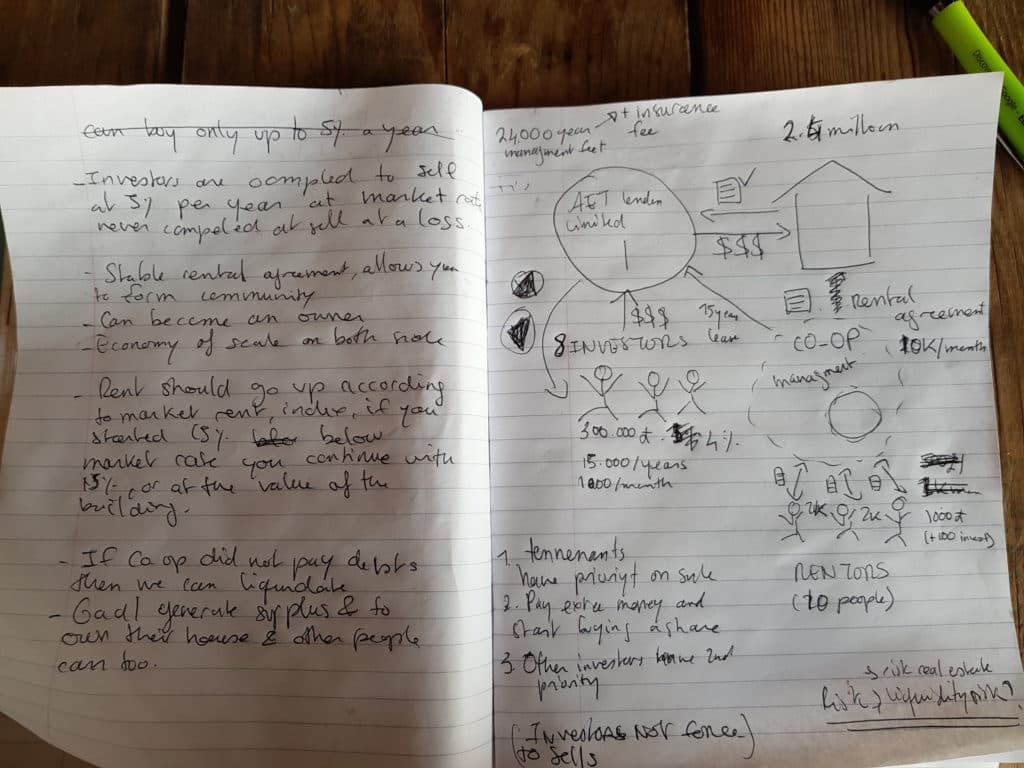 can buy only up to 5% a year
- Investors are compled to sell
at 5% per year at market rate
never compeled at sell at a loss.
- Stable rental agreement, allows you
to form community
- Can become an owner
- Economy of scale on both side
- Rent should go up according
to market rent, index, if you
started 15% below
market rate you continue with
15%, or at the value of the
building.
- If Co op did not pay debts
then we can liquidate
- Goal generate surplus & to
own their house & other people
can too.
24,000 year → + insurence
managment feet
fee
2.5 milloon
AET
Limited
$$$
$$$
15 year
lease
8 INVESTORS
300.000
4%
15.000/years
1000/month
Rental
agreement
10K/month
CO-OP
managment
2K
2K
1000
(+100 invest)
RENTORS
(10 people)
1. tennenants
have pririyt on sale
2. Pay extra money and
start buying a share
3. Other investors have 2nd
priority
(Investors NOT force)
to sells
risk real estate
Risk → liquidity risk?